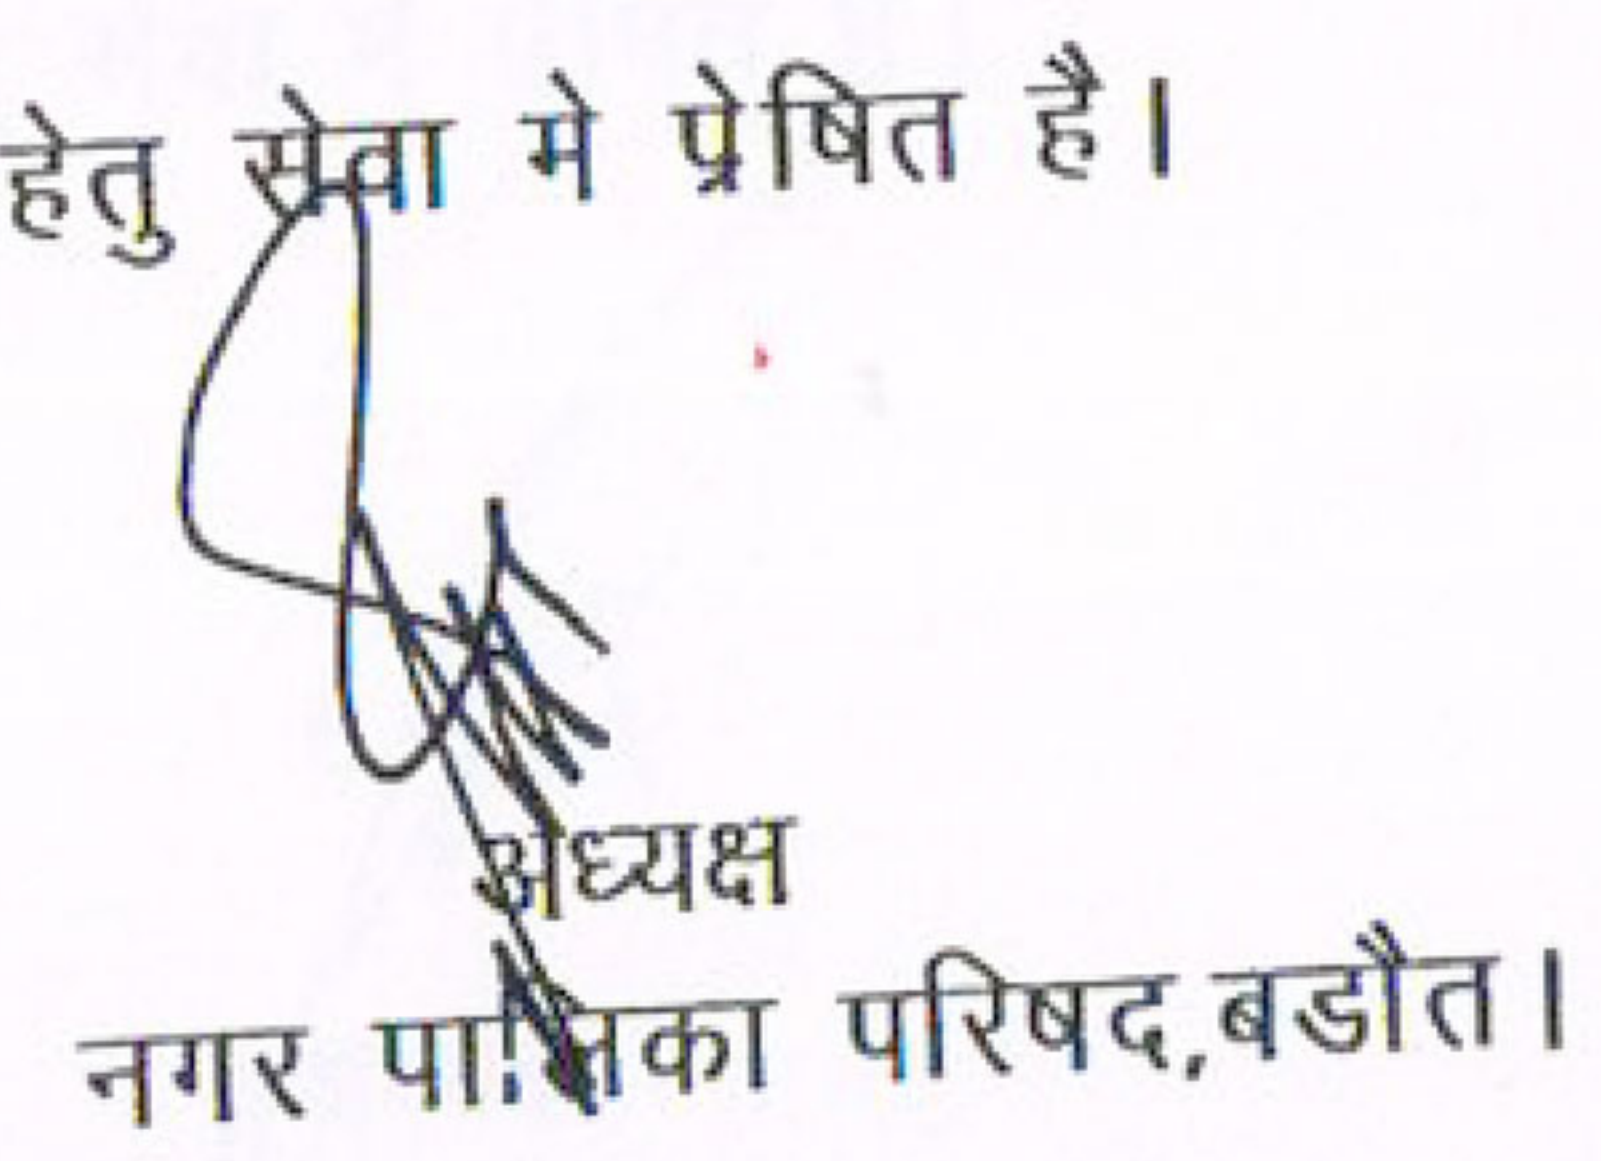 हेतु सेवा मे प्रेषित है।
अध्यक्ष
नगर पालिका परिषद,बडौत।